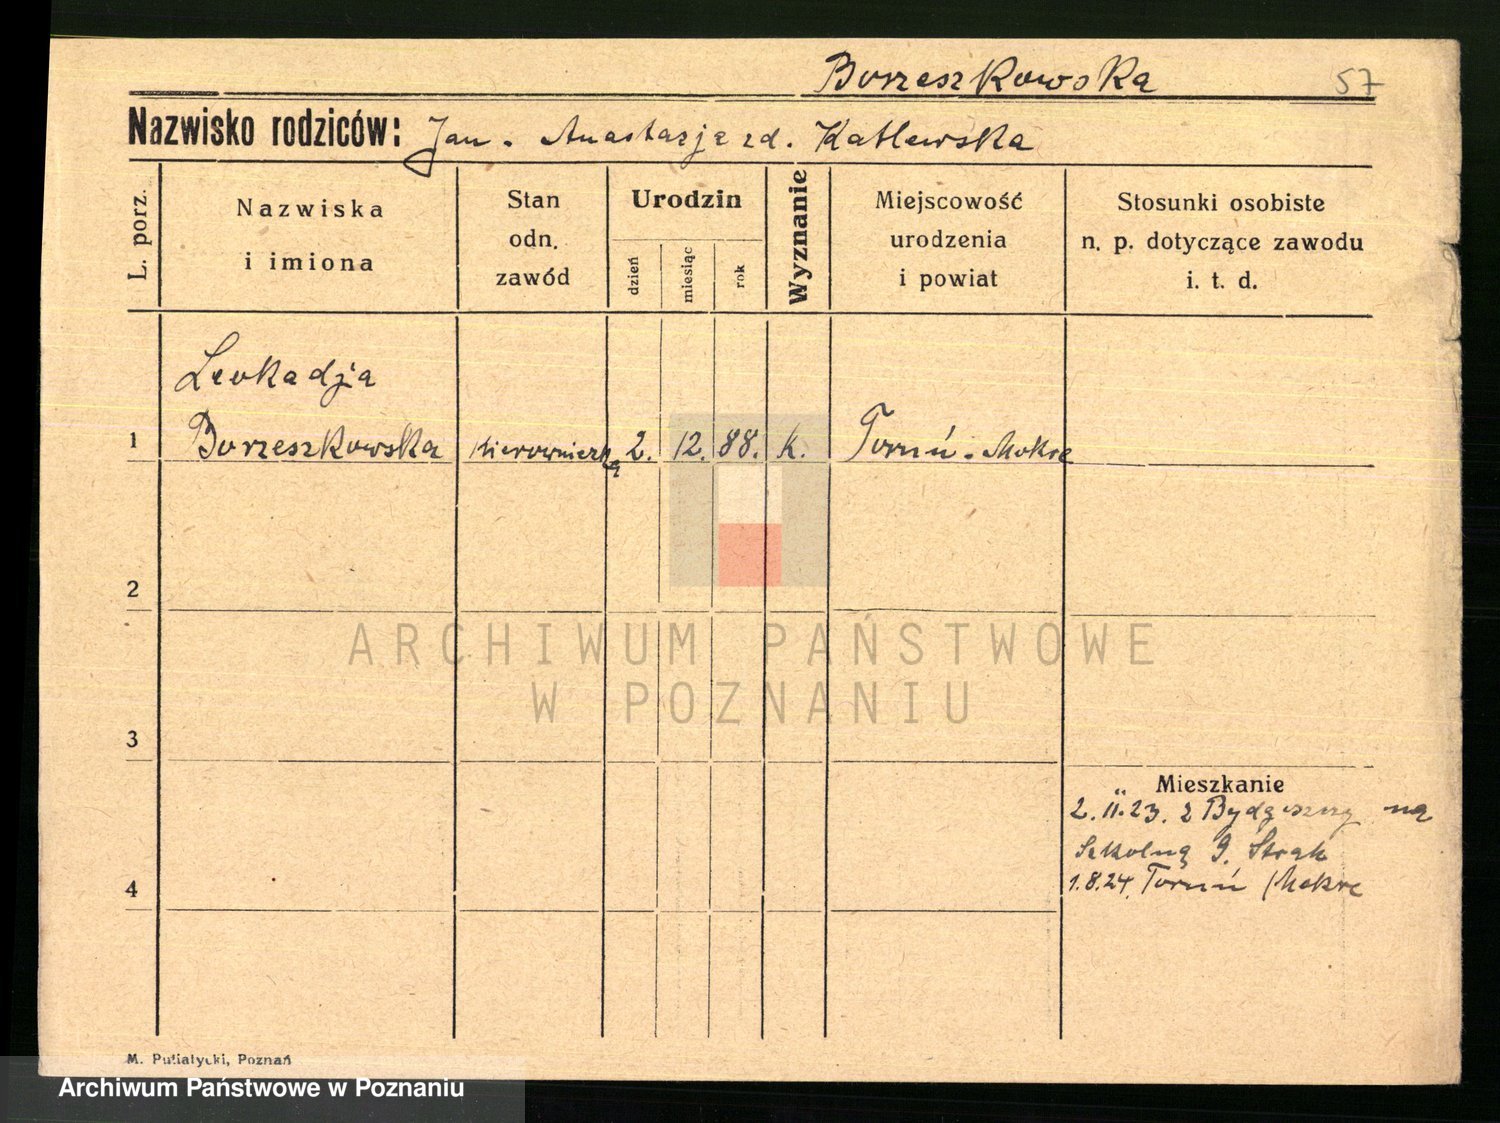 Borzeszkowska 57
Nazwisko rodziców: Jan. Anastazja zd. Katlewska
L. porz.
Nazwiska
i imiona
Stan
odn.
zawód
Urodzin
dzień
miesiąc
rok
Wyznanie
Miejscowość
urodzenia
i powiat
Stosunki osobiste
n. p. dotyczące zawodu
i. t. d.
Leokadja
1 Borzeszkowska kierowniczka 2. 12. 88. k. Toruń - Mokre
2
ARCHIWUM PAŃSTWOWE
W POZNANIU
3
Mieszkanie
2. II. 23. z Bydgoszczy na
Szkolną 9.
4 1.8.24. Toruń Mokre
M. Putiatycki, Poznań
Archiwum Państwowe w Poznaniu